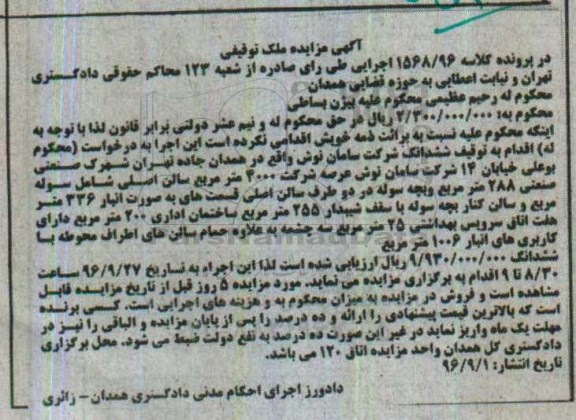 آگهی مزایده ملک توقیفی
در پرونده کلاسه ۱۵۶۸/۹۶ اجرایی طی رای صادره از شعبه ۱۲۳ محاکم حقوقی دادگستری
تهران و نیابت اعطایی به حوزه قضایی همدان
محکوم له رحیم عظیمی محکوم علیه بیژن بساطی
محکوم به: ۲/۳۰۰/۰۰۰/۰۰۰ ریال در حق محکوم له و نیم عشر دولتی برابر قانون لذا با توجه به
اینکه محکوم علیه نسبت به برائت ذمه خویش اقدامی نکرده است این اجرا به درخواست (محکوم
له) اقدام به توقیف ششدانگ شرکت سامان نوش واقع در همدان جاده تهران شهرک صنعتی
بوعلی خیابان ۱۴ شرکت سامان نوش عرصه شرکت ۴۰۰۰ متر مربع سالن اصلی شامل سوله
صنعتی ۲۸۸ متر مربع وبچه سوله در دو طرف سالن اصلی قسمت های به صورت انبار ۳۳۶ متر
مربع و سالن کنار بچه سوله با سقف شیبدار ۲۵۵ متر مربع ساختمان اداری ۲۰۰ متر مربع دارای
هفت اتاق سرویس بهداشتی ۲۵ متر مربع سه چشمه به علاوه حمام سالن های اطراف محوطه با
کاربری های انبار ۱۰۰۶ متر مربع
ششدانگ ۹/۹۳۰/۰۰۰/۰۰۰ ریال ارزیابی شده است لذا این اجراء به تاریخ ۹۶/۹/۲۷ ساعت
۸/۳۰ تا ۹ اقدام به برگزاری مزایده می نماید. مورد مزایده ۵ روز قبل از تاریخ مزایده قابل
مشاهده است و فروش در مزایده به میزان محکوم به و هزینه های اجرایی است. کسی برنده
است که بالاترین قیمت پیشنهادی را ارائه و ده درصد را پس از پایان مزایده و الباقی را نیز در
مهلت یک ماه واریز نماید در غیر این صورت ده درصد به نفع دولت ضبط می شود. محل برگزاری
دادگستری کل همدان واحد مزایده اتاق ۱۲۰ می باشد.
تاریخ انتشار: ۹۶/۹/۱
دادورز اجرای احکام مدنی دادگستری همدان- زائری